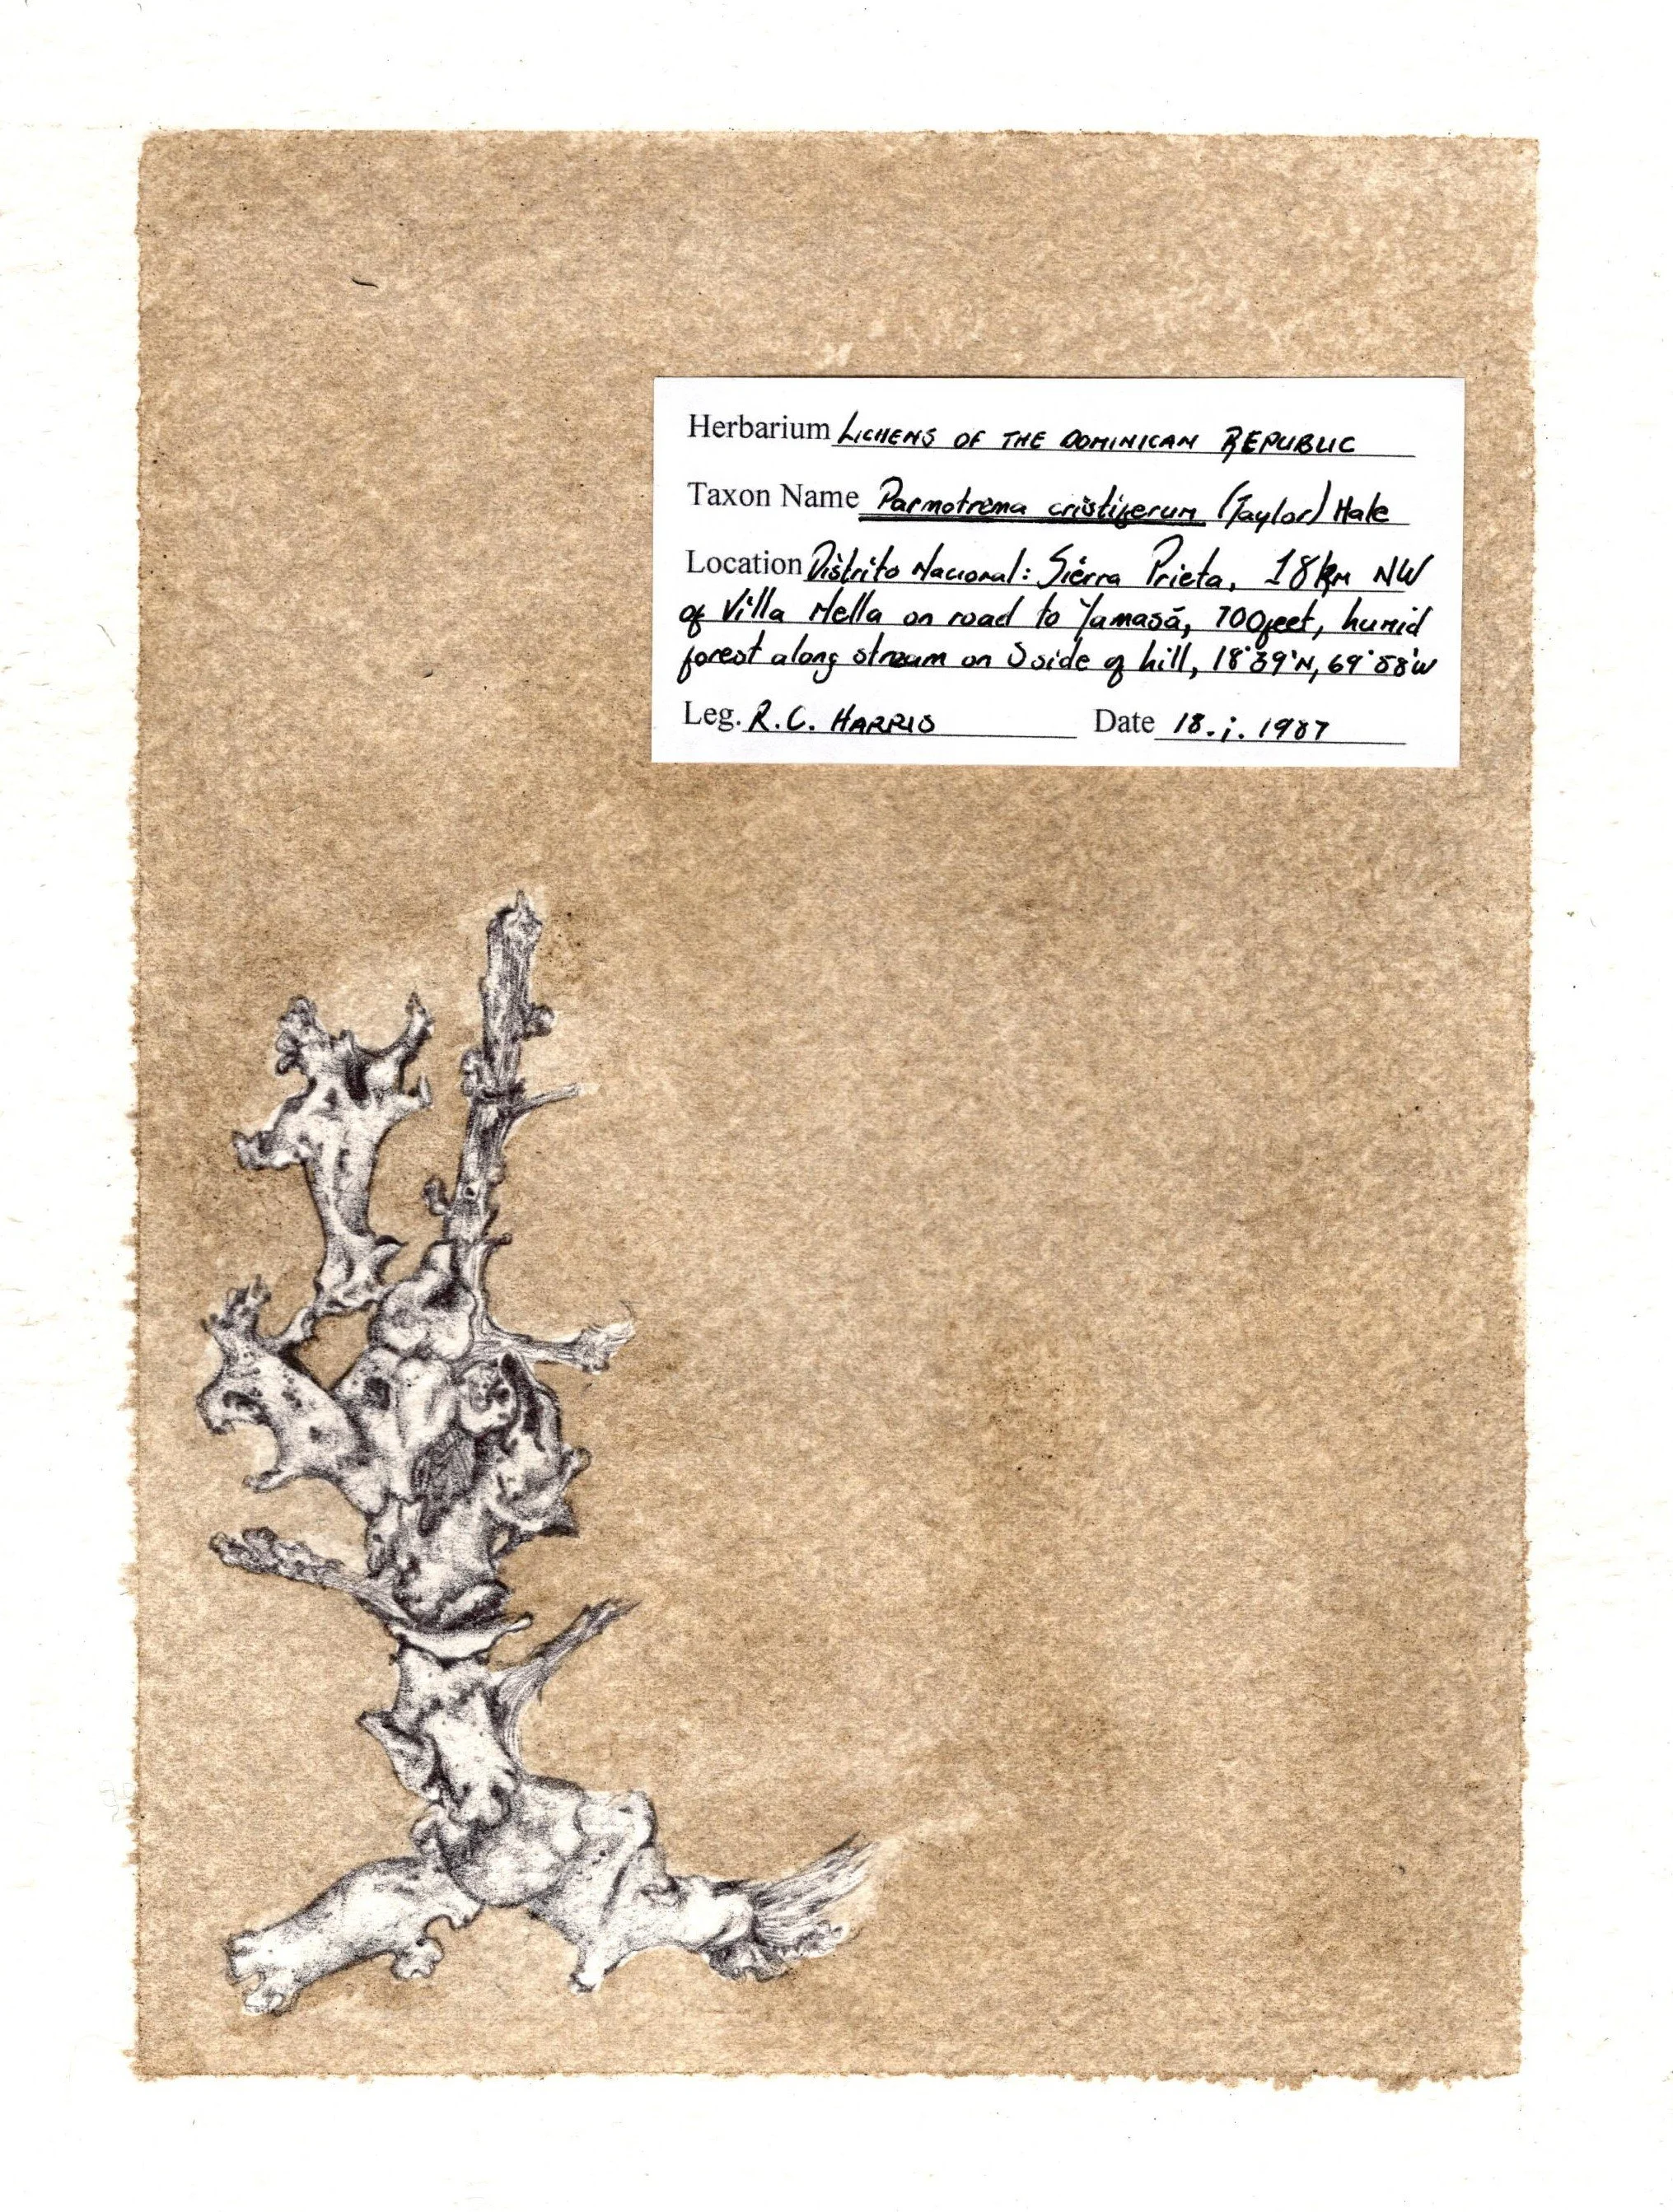 Herbarium LICHENS OF THE DOMINICAN REPUBLIC
Taxon Name Parmotrema cristiferum (Taylor) Hale
Location Distrito Nacional: Sierra Prieta, 18km NW
of Villa Mella on road to Yamasá, 700feet, humid
forest along stream on S side of hill, 18°39'N, 69°58'W
Leg. R.C. HARRIS Date 18.i.1987